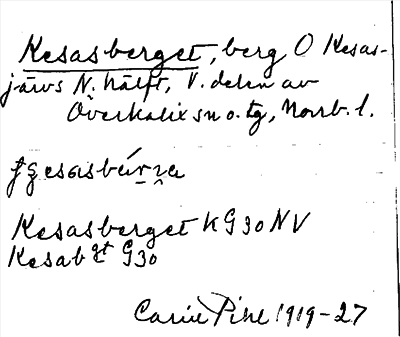 Kesasberget, berg O Kesas-
järvs N. hälft, V. delen av
Överkalix sn o. tg, Norrb. l.
Kesasberget K G30 NV
Kesab gt G30
Carin Pihl 1919-27